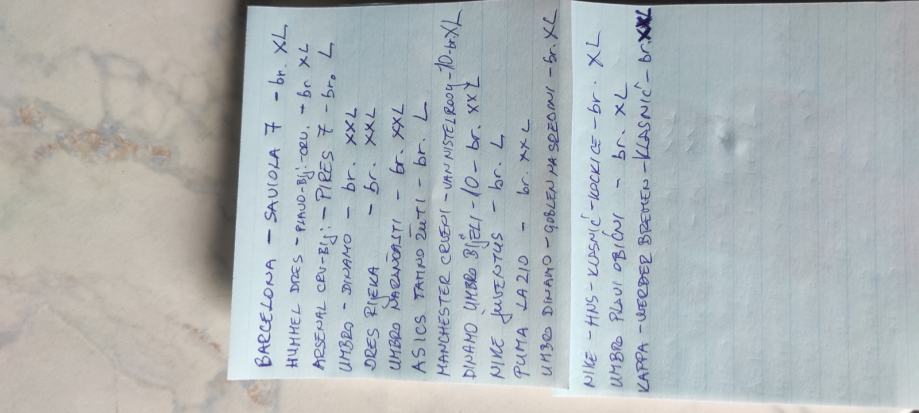 BARCELONA - SAVIOLA 7 - br. XL
HUMMEL DRES - PLAVO-Bij.-CRV. - br XL
ARSENAL CRV-Bij. - PIRES 7 - br. L
UMBRO - DINAMO - br. XXL
DRES RIJEKA - br. XXL
UMBRO NARANČASTI - br. XXL
ASICS TAMNO ŽUTI - br. L
MANCHESTER CRVENI - VAN NISTELROOY - 10 - br. XL
DINAMO UMBRO BIJELI - 10 - br. XXL
NIKE JUVENTUS - br. L
PUMA LAZIO - br. XXL
UMBRO DINAMO - GOBLEN NA SREDINI - br. XL
NIKE - HNS - KLASNIĆ - KOCKICE - br. XL
UMBRO PLAVI OBIČNI - br. XL
KAPPA - WERDER BREMEN - KLASNIĆ - br. XXL